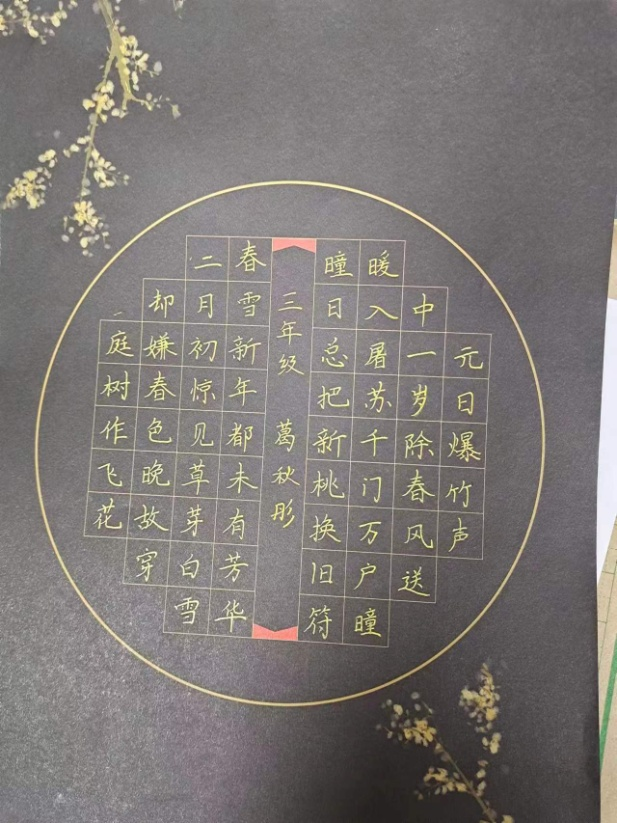 元日爆竹声
中一岁除春风送
暖入屠苏千门万户瞳
瞳日总把新桃换旧符
三年级 葛秋彤
春雪新年都未有芳华
二月初惊见草芽白雪
却嫌春色晚故穿
庭树作飞花